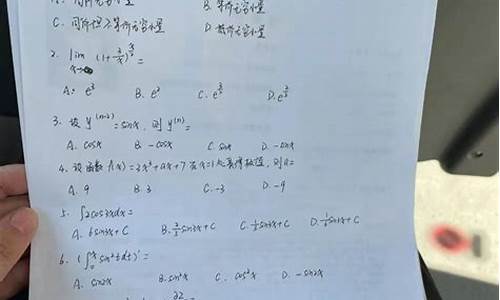 A. 同阶无穷小量 B. 等价无穷小量
C. 同阶但不等价无穷小量 D. 高阶无穷小量
2. lim x→∞ (1+2/x)^ =
A. e³ B. e² C. e D. e
3. 设 y⁽ⁿ⁻²⁾=sinx, 则 y⁽ⁿ⁾=
A. cosx B. -cosx C. sinx D. -sinx
4. 设函数 f(x)=2x²+ax+7 在x=1处取得极值, 则a=
A. 9 B. 3 C. -3 D. -9
5. ∫2cos3xdx=
A. 6sin3x+C B. 2/3 sin3x+C C. 1/3 sin3x+C D. 1/6 sin3x+C
6. (∫₀ˣ sin²tdt)'=
A. sin2x B. sin²x C. cos²x D. -sin2x